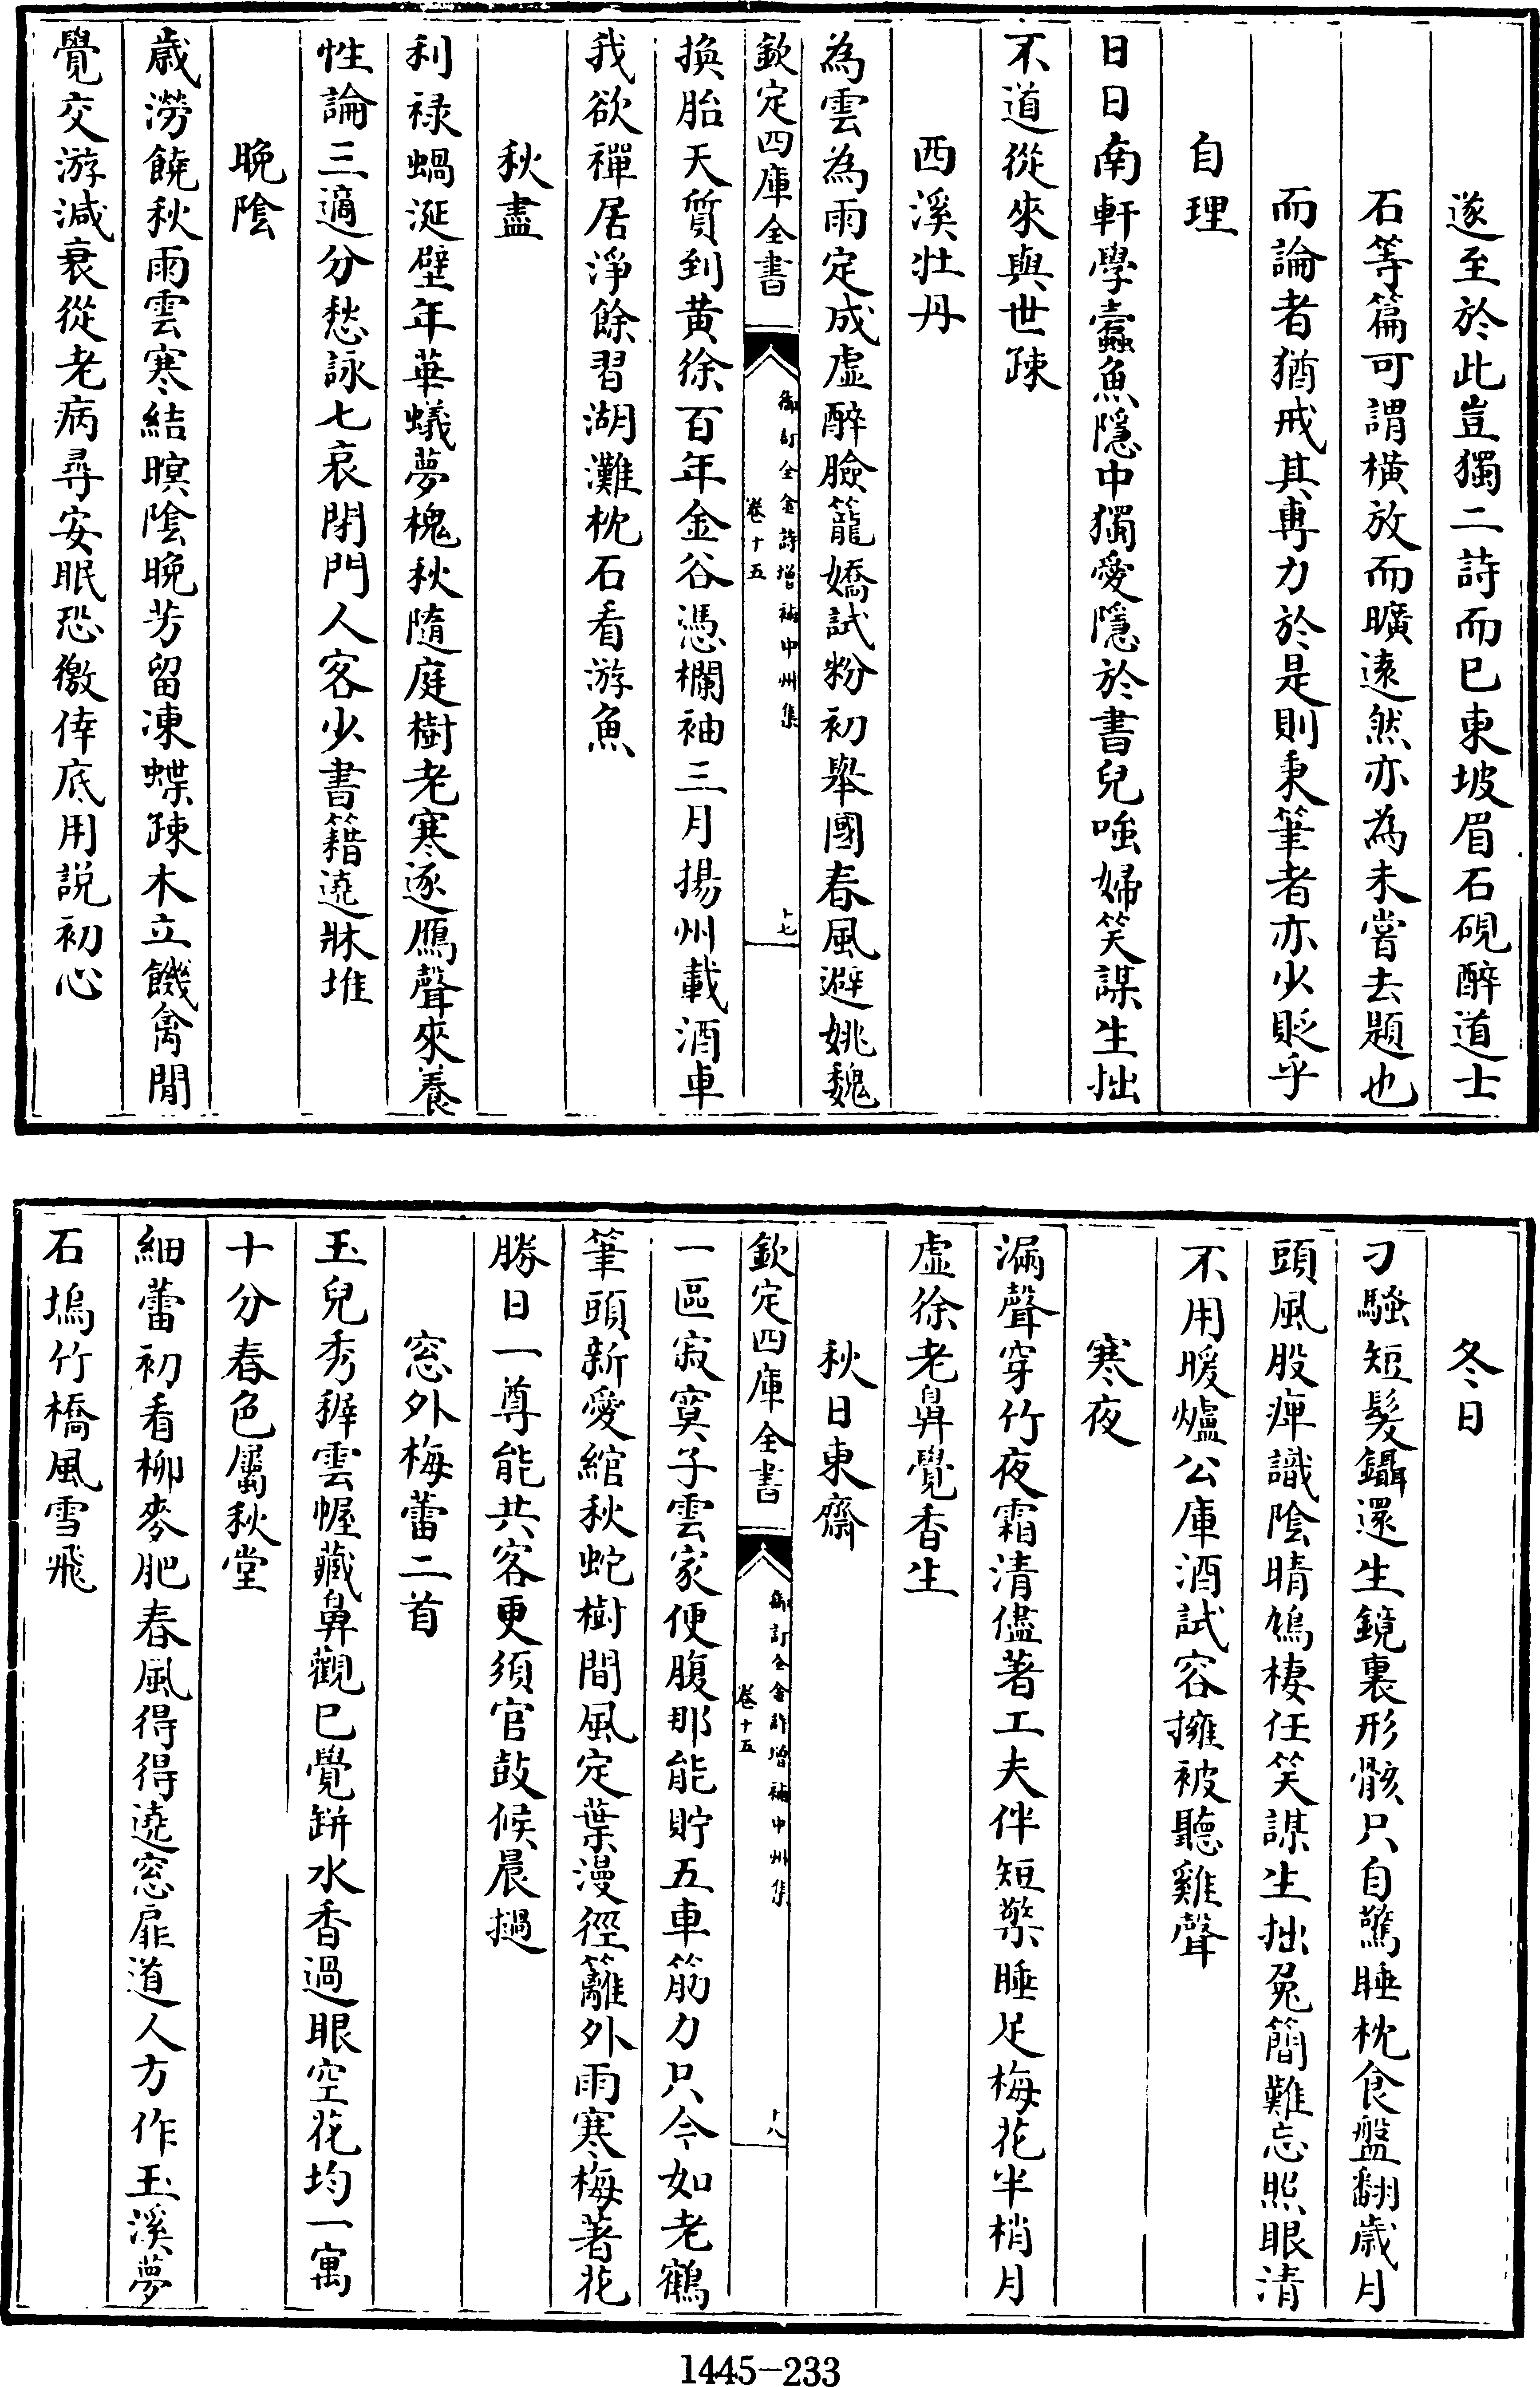 遂至於此豈獨二詩而已東坡眉石硯醉道士
石等篇可謂橫放而曠遠然亦為未嘗去題也
而論者猶戒其專力於是則秉筆者亦少貶乎
自理
日日南軒學蠹魚隱中獨愛隱於書兒嗤婦笑謀生拙
不道從來與世疎
西溪牡丹
為雲為雨定成虛醉臉籠嬌試粉初舉國春風避姚魏
欽定四庫全書
御訂全金詩增補中州集
卷十五
十七
換胎天質到黃徐百年金谷憑欄袖三月揚州載酒車
我欲禪居淨餘習湖灘枕石看游魚
秋盡
利祿蝸涎壁年華蟻夢槐秋隨庭樹老寒逐鴈聲來養
性論三適分愁詠七哀閉門人客少書籍遶牀堆
晚陰
歲澇饒秋雨雲寒結暝陰晚芳留凍蝶疎木立饑禽閒
覺交游減衰從老病尋安眠恐徼倖底用說初心
冬日
刁騷短髮鑷還生鏡裏形骸只自驚睡枕食盤翻歲月
頭風股痺識陰晴鳩棲任笑謀生拙兔簡難忘照眼清
不用暖爐公庫酒試容擁被聽雞聲
寒夜
漏聲穿竹夜霜清儘著工夫伴短檠睡足梅花半梢月
虛徐老鼻覺香生
秋日東齋
欽定四庫全書
御訂全金詩增補中州集
卷十五
十八
一區寂寞子雲家便腹那能貯五車筋力只今如老鶴
筆頭新愛綰秋蛇樹間風定葉漫徑籬外雨寒梅著花
勝日一尊能共客更須官鼓候晨撾
窓外梅蕾二首
玉兒秀稺雲幄藏鼻觀已覺缾水香過眼空花均一寓
十分春色屬秋堂
細蕾初看柳麥肥春風得得遶窓扉道人方作玉溪夢
石塢竹橋風雪飛
1445-233